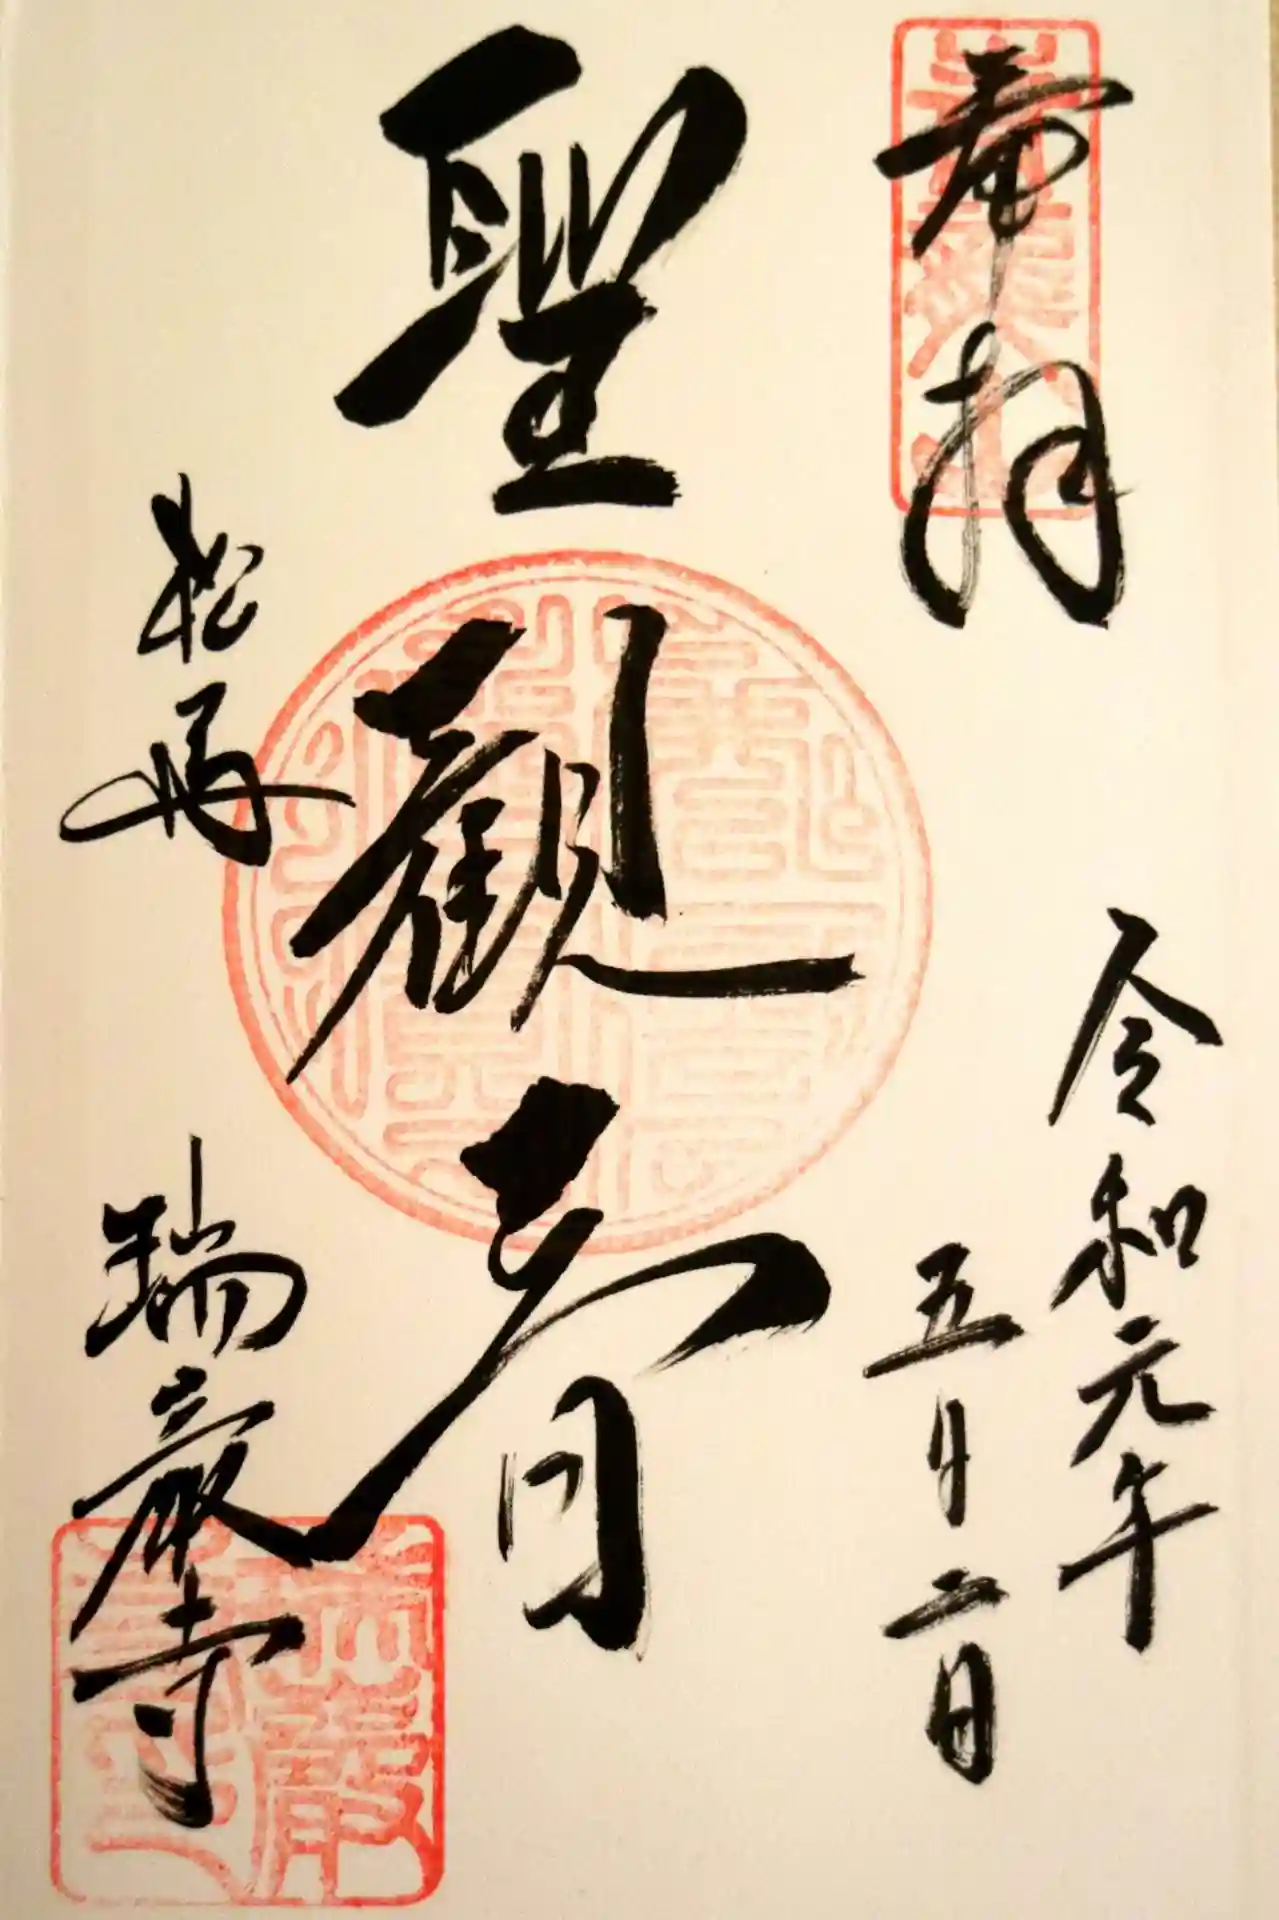 奉拝
令和元年
五月二日
聖觀音
松島
瑞巌寺